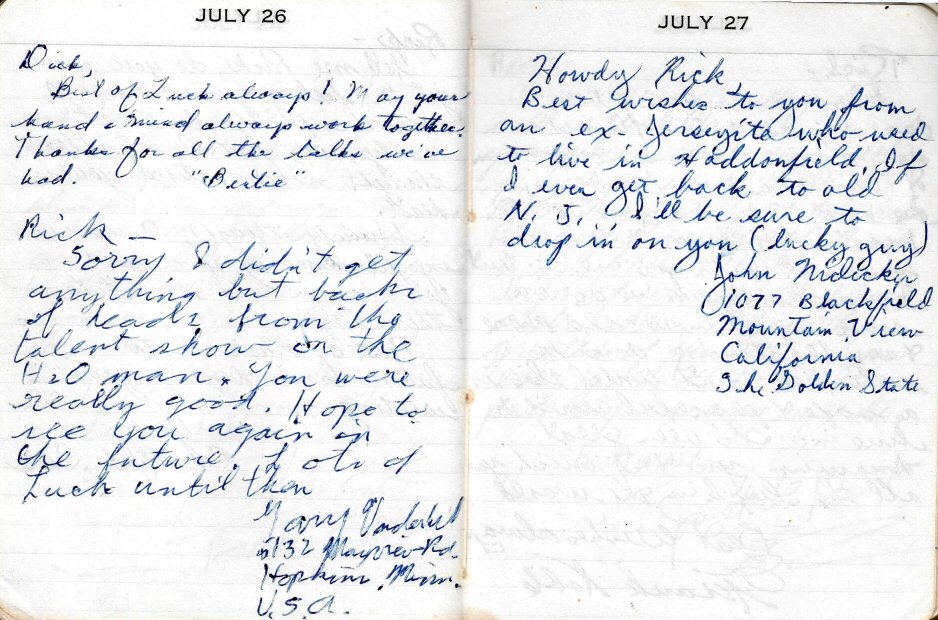 JULY 26
Dick,
Best of Luck always! May your
hand & mind always work together.
Thanks for all the talks we've
had. "Bertie"
Rick —
Sorry I didn't get
anything but backs
of heads from the
talent show or the
H2O man. You were
really good. Hope to
see you again in
the future. Lots of
Luck until then
Gary
5132 Mayview Rd.
Hopkins, Minn.
U.S.A.
JULY 27
Howdy Rick,
Best wishes to you from
an ex-Jerseyite who used
to live in Haddonfield. If
I ever get back to old
N. J. I'll be sure to
drop in on you (lucky guy)
John
1077 Blackfield
Mountain View
California
The Golden State